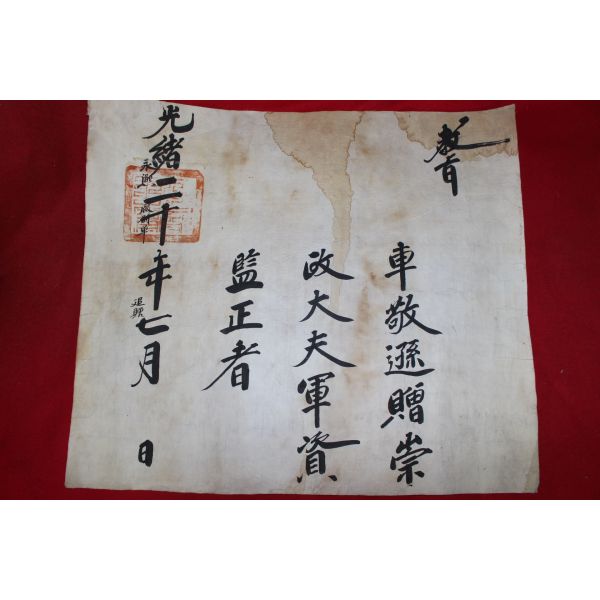 教旨
車敬遜贈崇
政大夫軍資
監正者
光緒二十年七月　日
追贈